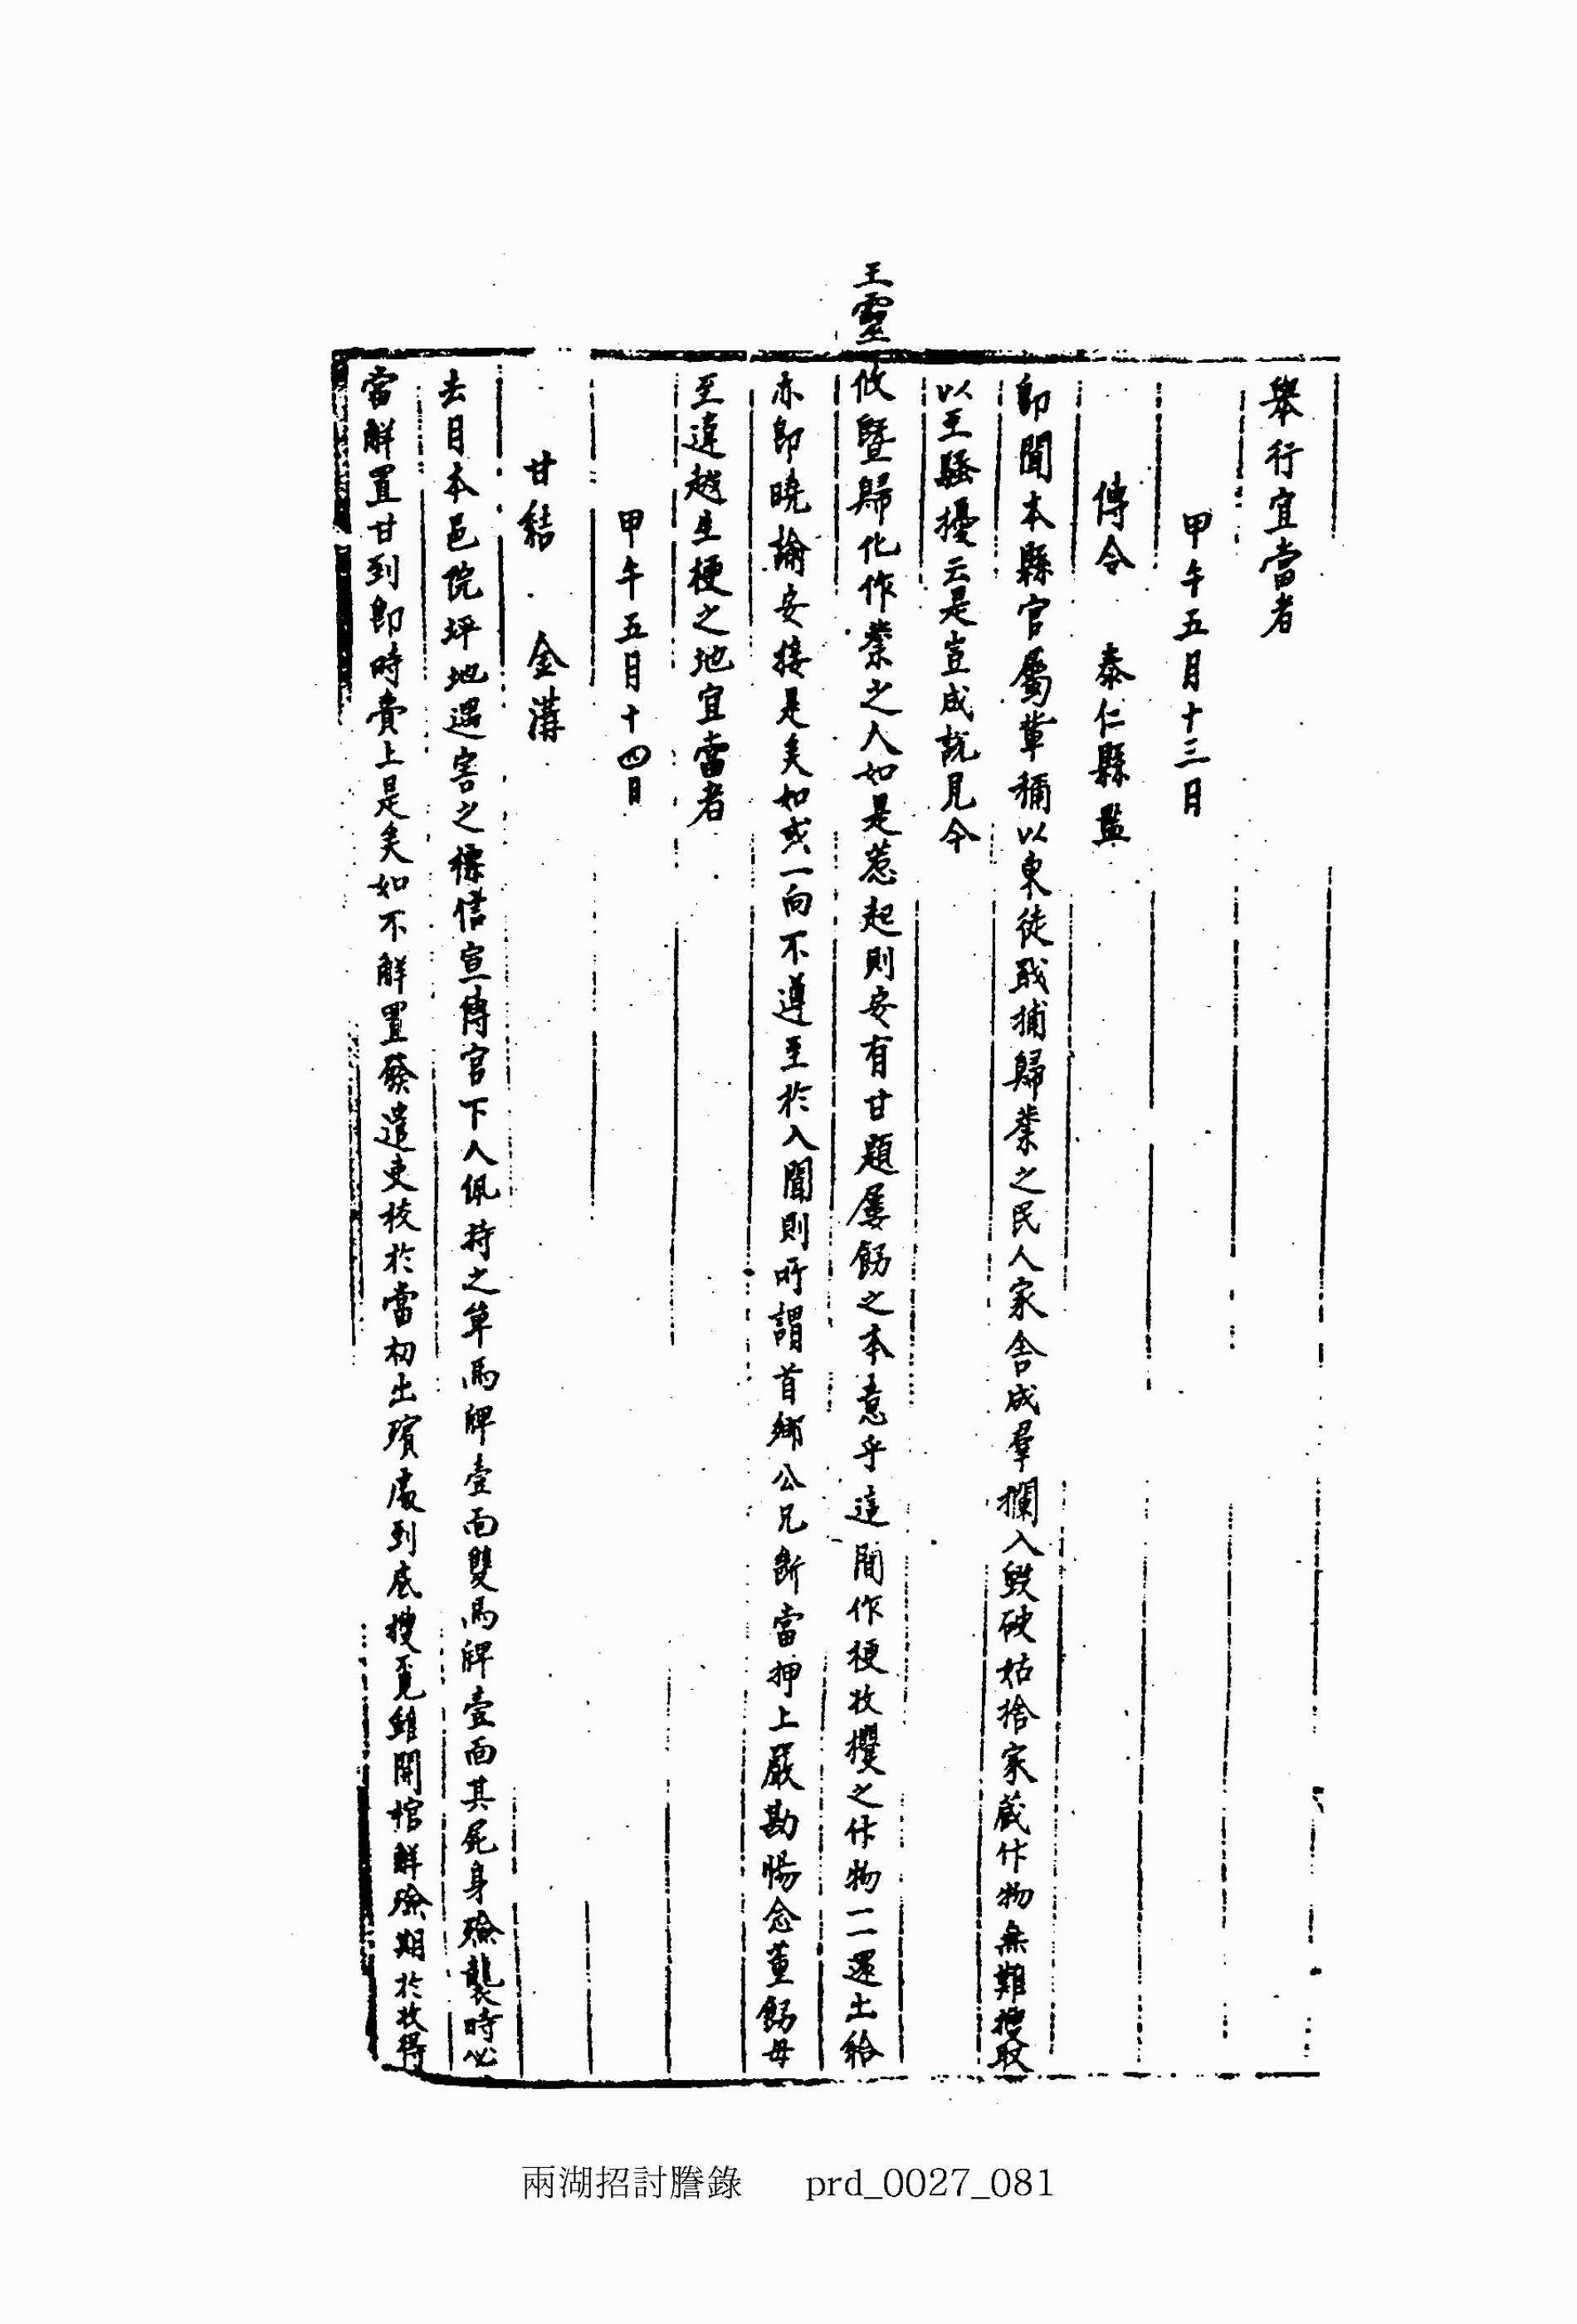 舉行宜當者
甲午五月十三日
傳令 泰仁縣監
卽聞本縣官屬輩稱以東徒戢捕歸業之民人家舍成羣攔入毁破姑捨家藏什物無難搜取
以至騷擾云是豈成說見今
王靈攸曁歸化作業之人如是惹起則安有甘題屢飭之本意乎這間作梗收攫之什物一一還出給
亦卽曉諭安接是矣如或一向不遵至於入聞則所謂首鄕公兄斷當押上嚴勘惕念董飭毋
至違越生梗之地宜當者
甲午五月十四日
甘結 金溝
去月本邑院坪地遇害之標信宣傳官下人佩持之單馬牌壹面雙馬牌壹面其屍身殮襲時必
當解置甘到卽時賫上是矣如不解置發遣吏校於當初出殯處到底搜覓雖開棺解殮期於收得
兩湖招討謄錄 prd_0027_081